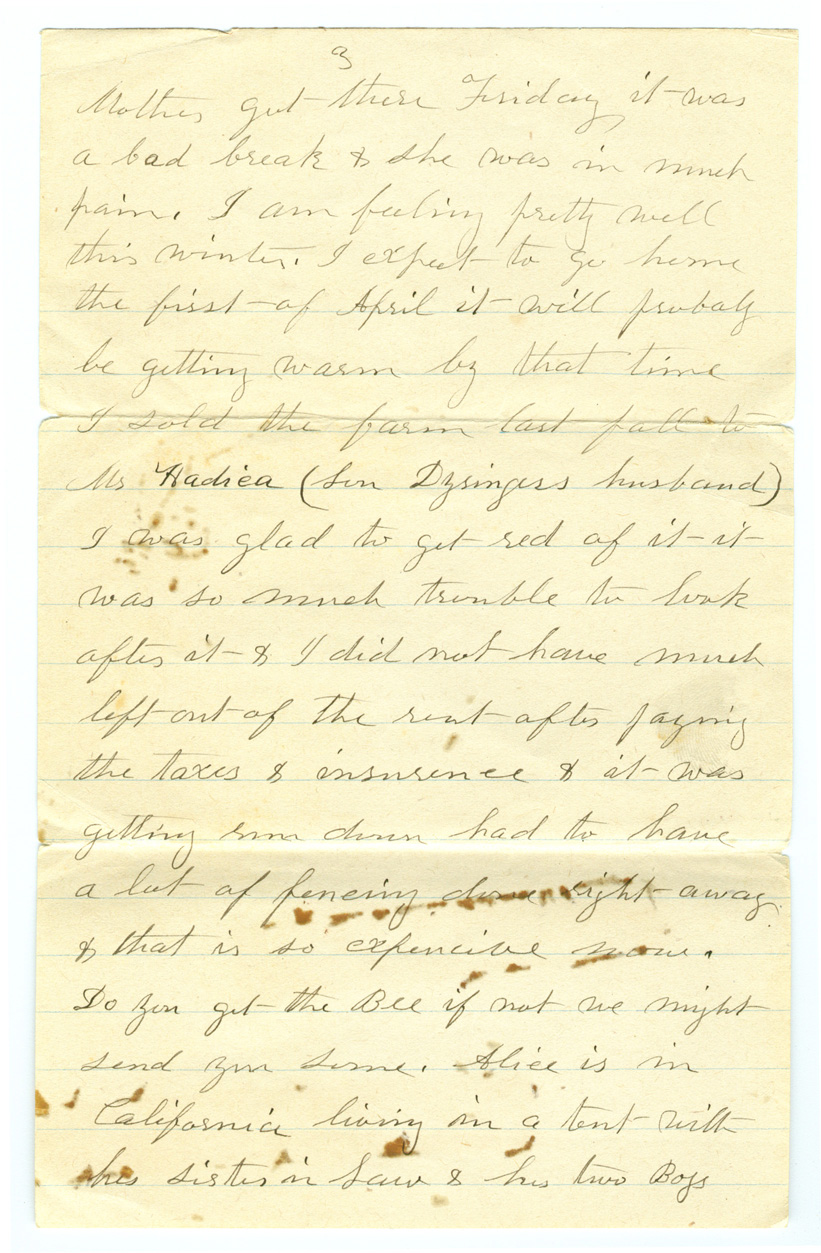 3
Mother got there Friday it was
a bad break & she was in much
pain. I am feeling pretty well
this winter. I expect to go home
the first of April it will probaly
be getting warm by that time
I sold the farm last fall to
Mr Hadica (Lou Dysingers husband)
I was glad to get red of it it
was so much trouble to look
after it & I did not have much
left out of the rent after paying
the taxes & insurence & it was
getting run down had to have
a lot of fencing done right away
& that is so expencive now.
Do you get the Bee if not we might
send you some. Alice is in
California living in a tent with
her sister in Law & her two Boys